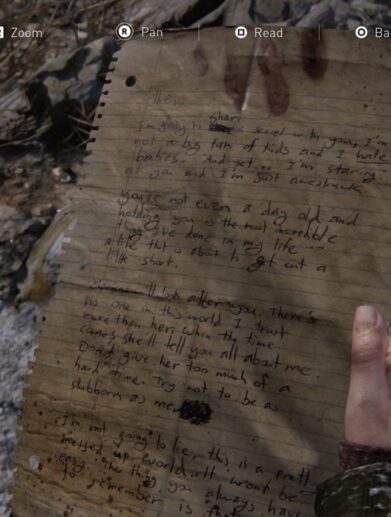 Zoom R Pan Read Ba
I'm going to share a secret with you, I'm
not a big fan of kids and I hate
babies. And yet... I'm staring
at you and I'm just awestruck.
you're not even a day old and
holding you is the most incredible
thing I've done in my life --
a life that is about to get cut a
little short.
will look after you. There's
no one in this world I trust
more than her. When the time
comes she'll tell you all about me.
Don't give her too much of a
hard time. Try not to be as
stubborn as me.
I'm not going to lie, this is a pretty
messed up world. It won't be
easy. The thing you always have
to remember is that